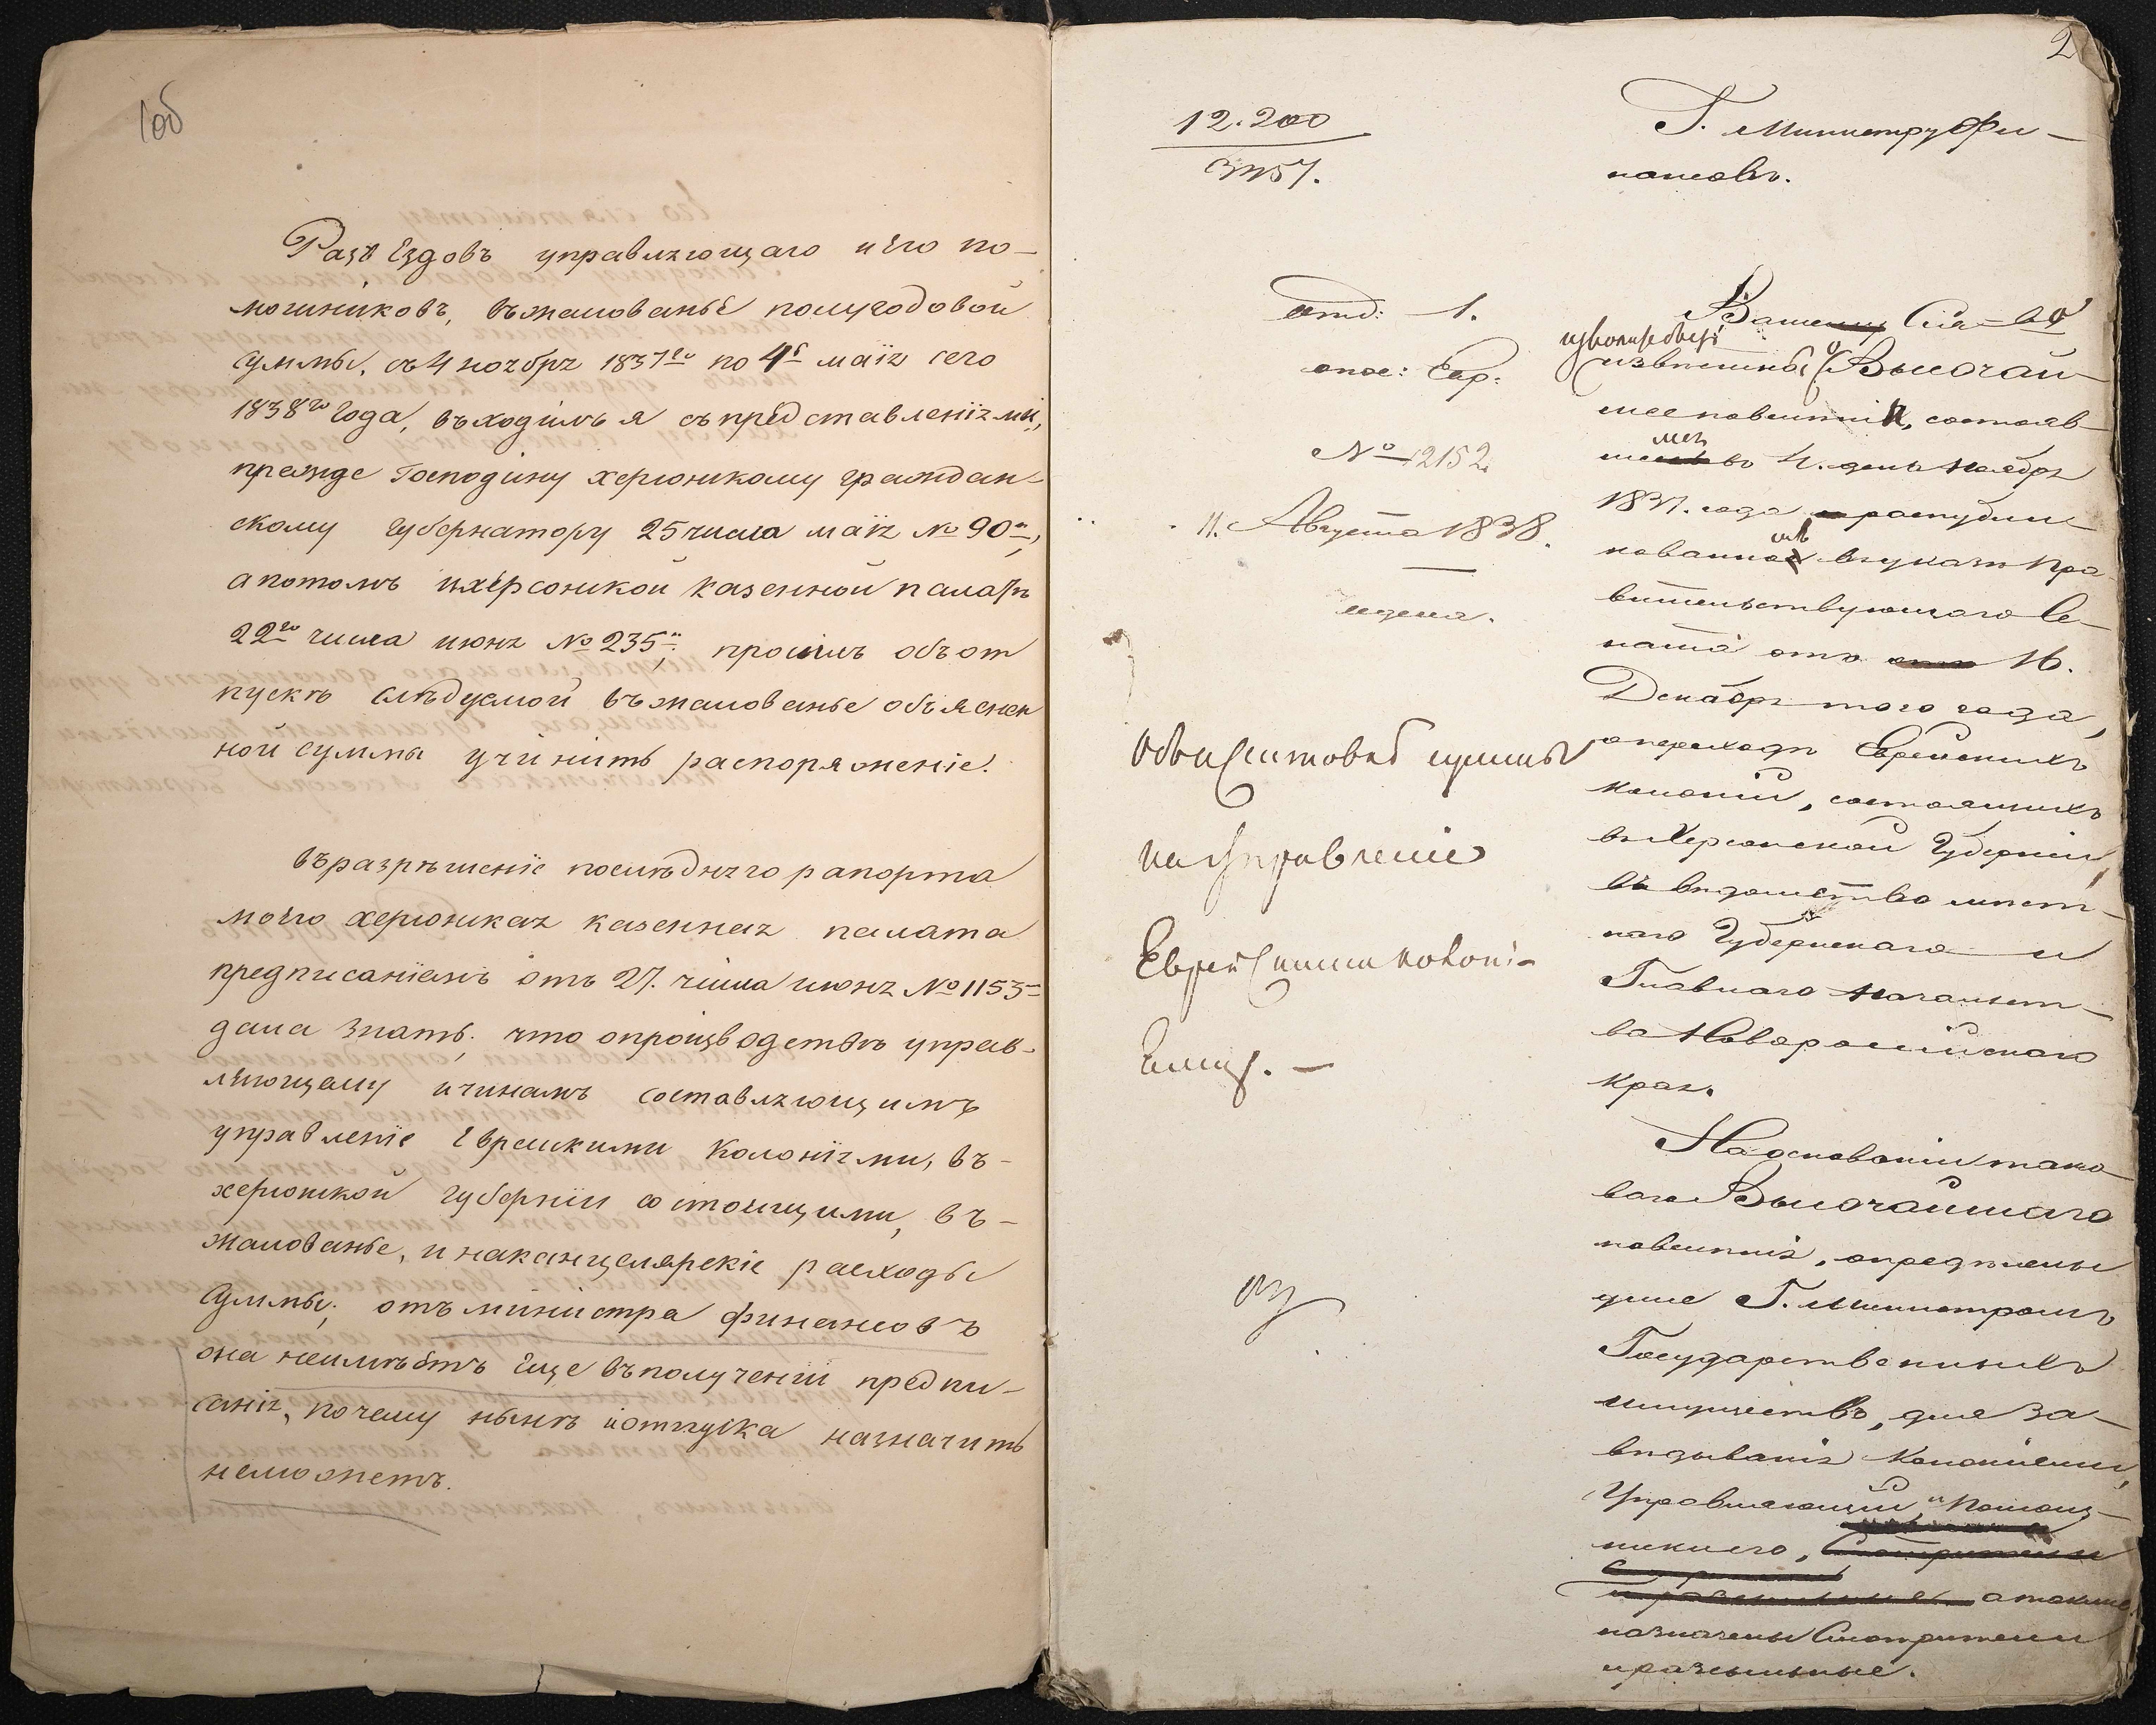 1об
Разъѣздовъ управляющаго и его по-
мошниковъ, въ жалованьѣ полугодовой
суммы, съ 4 ноября 1837го по 4е маія сего
1838го года, въходилъ я съ представленіями,
прежде Господину херсонкому граждан-
скому губернатору 25 числа маія № 90м,
а потомъ и херсонкой казенной палатѣ
22го числа июня № 235м; просилъ объ от
пускѣ слѣдуемой въ жалованье объяснен
ной суммы учинить распоряженіе.
въ разрѣшеніе послѣдняго рапорта
моего херсонкая казенная палата
предписаніемъ отъ 27. числа июня № 1153м
дала знать; что о производствѣ управ-
ляющему и чинамъ составляющимъ
управленіе еврейкими колоніями, въ-
херсонкой губерніи состоящими, въ-
жалованье, и на канцелярскіе расходы
суммы; отъ министра финансовъ
она неимѣетъ еще въ полученіи предпи-
санія, почему нынѣ и отпуска назначить
неможетъ.
2
12.200
3457.
Г. Министру Фи-
нансовъ.
отд: 1.
отое: Евр:
№ 12152.
11. Августа 1838.
Объ ассигнованіи суммы
на Управленіе
Еврейскими колоні-
ями. –
Вашему Сія-ву
извѣстно Высочай-
шее повелѣніе, состояв-
шееся въ 4. день Ноября
1837. года распубли-
кованное въ указѣ Пра-
вительствующаго Се-
ната отъ 16.
Декабря того года,
о переходѣ Еврейскихъ
колоній, состоящихъ
въ Херсонской Губерніи,
въ вѣдомство мѣст-
наго Губернскаго и
Главнаго Начальст-
ва Новороссійскаго
края.
На основаніи тако-
ваго Высочайшаго
повелѣнія, опредѣлены
уже Г. Министромъ
Государственныхъ
имуществъ, для за-
вѣдыванія колоніями,
Управляющій и Помощ-
никъ его, Смотрители
а также
назначены Смотрители
и разсыльные.